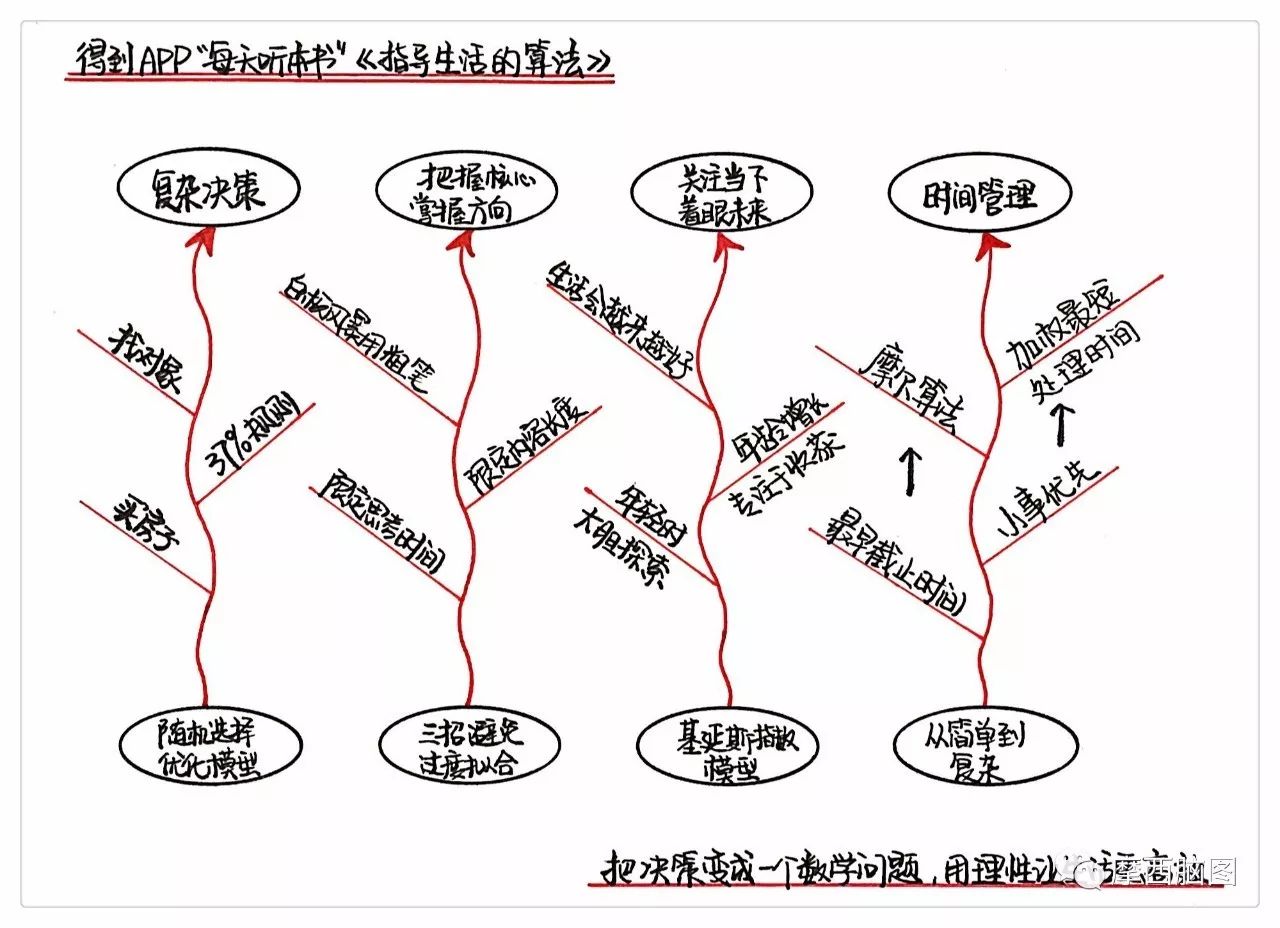 得到APP“每天听本书”《指导生活的算法》
复杂决策
找对象
37%规则
买房子
随机选择
优化模型
把握核心
掌握方向
白板风暴用粗笔
限定内容长度
限定思考时间
三招避免
过度拟合
关注当下
着眼未来
生活会越来越好
年龄增长
专注于收获
年轻时
大胆探索
基廷斯指数
模型
时间管理
加权最短
处理时间
摩尔算法
小事优先
最早截止时间
从简单到
复杂
把决策变成一个数学问题，用理性让
摩西脑图